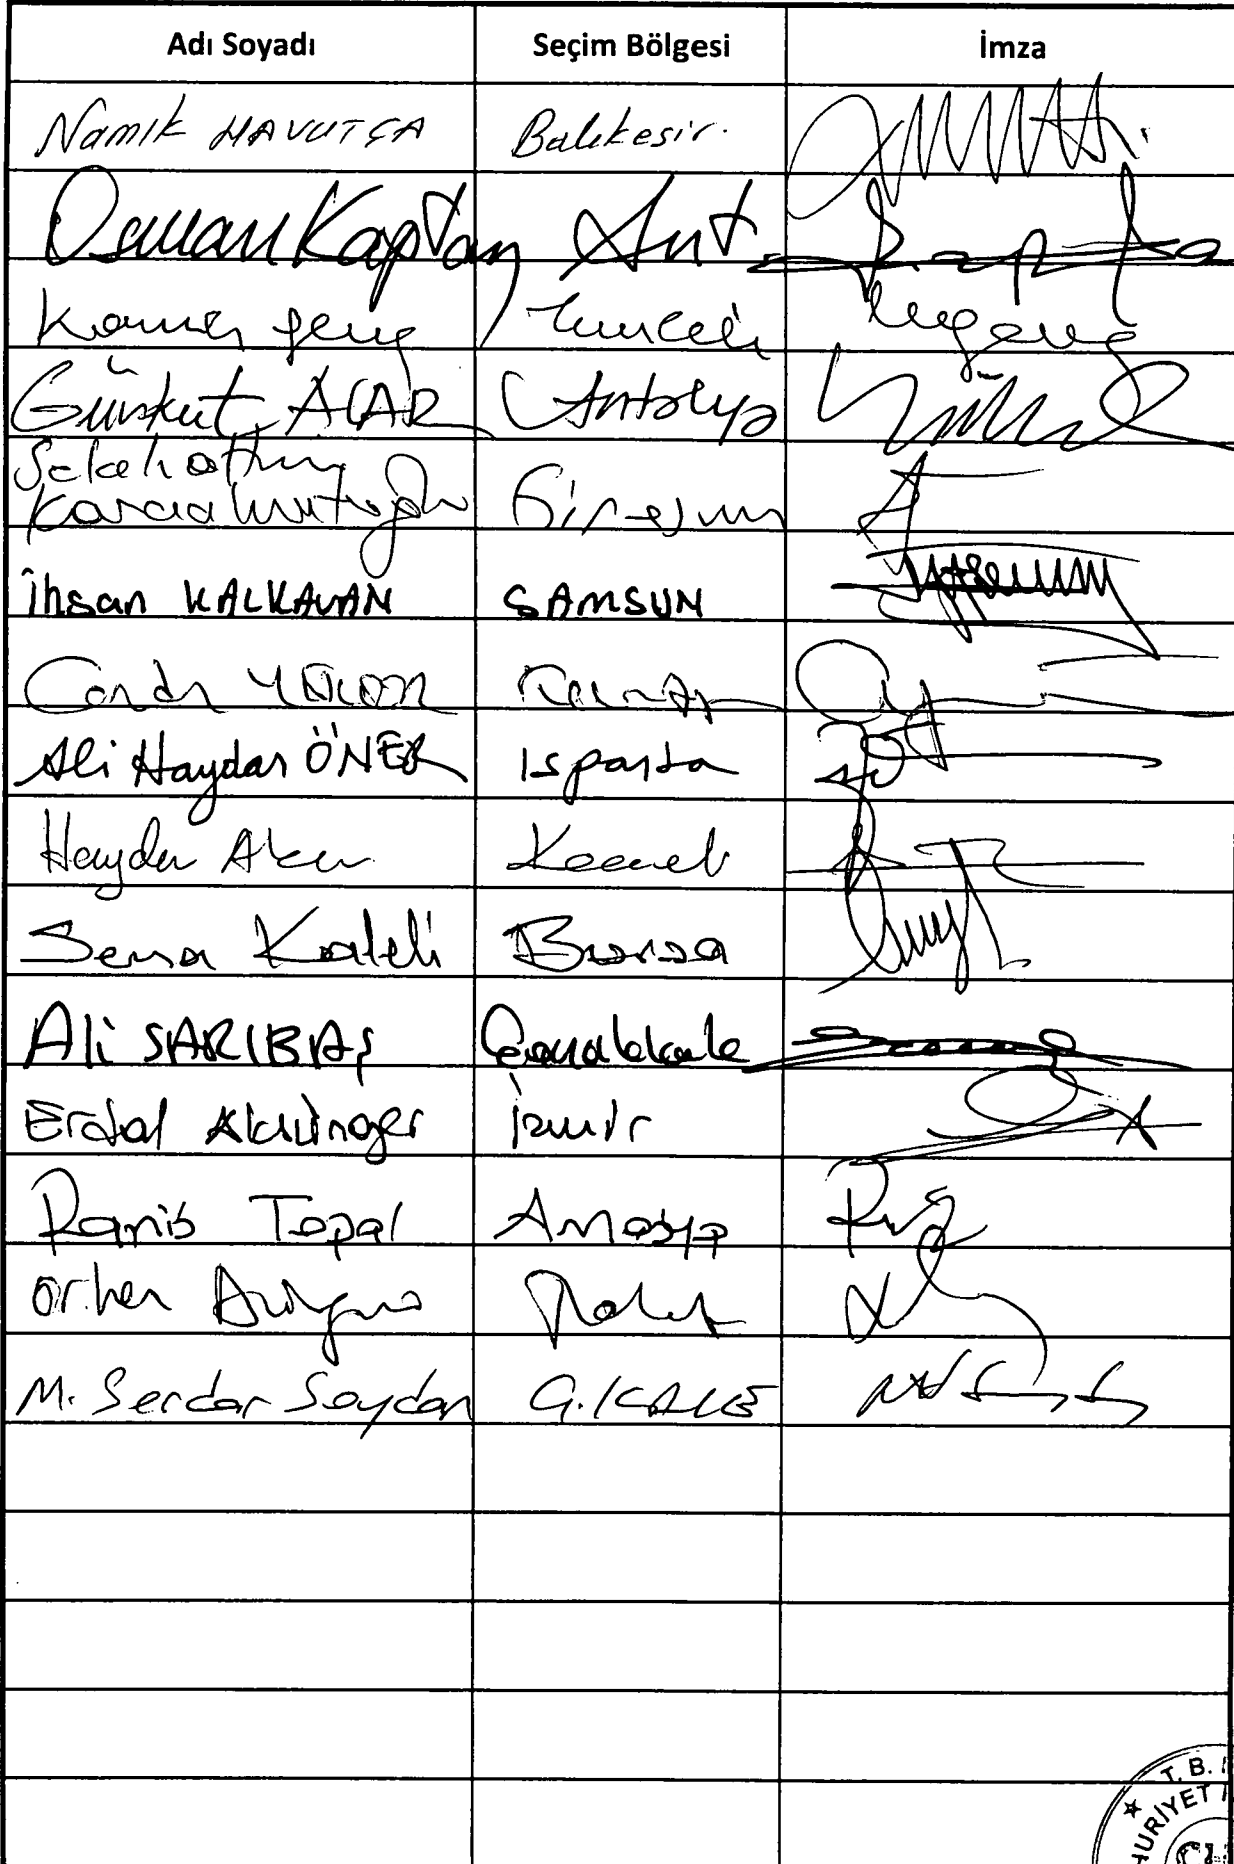 Adı Soyadı Seçim Bölgesi İmza
Namık HAVUTÇA Balıkesir.
Osman Kaptan Ant
Kamer Genç Tunceli
Gürkut ACAR Antalya
Selahattin
Karaahmetoğlu Giresun
İhsan KALKAVAN SAMSUN
Candan
Ali Haydar ÖNER Isparta
Haydar Akar Kocaeli
Sena Kaleli Bursa
Ali SARIBAŞ Çanakkale
Erdal Aksünger İzmir
Ramis Topal Amasya
Orhan Düzgün Tokat
M. Serdar Soydan Ç.KALE
T. B.